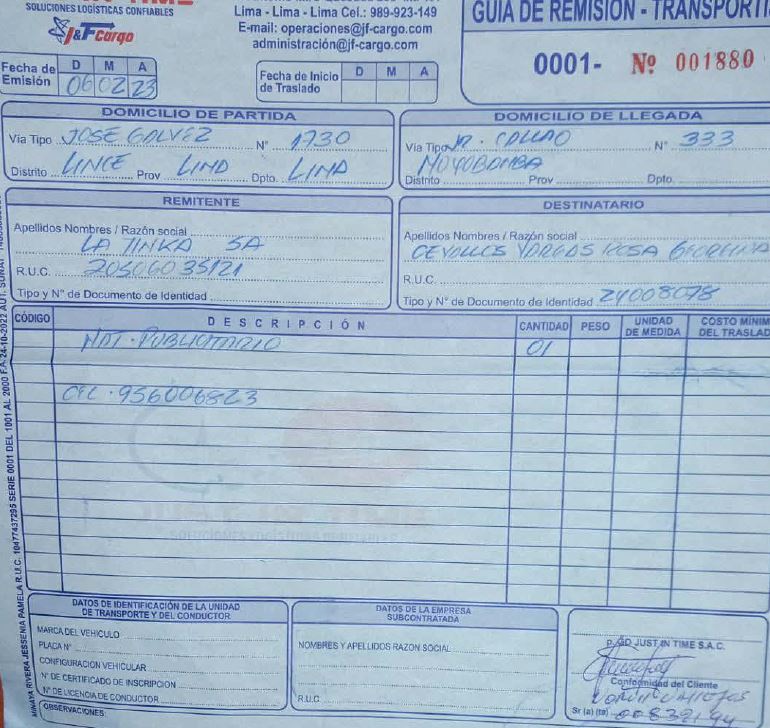 SOLUCIONES LOGÍSTICAS CONFIABLES
J&F cargo
Lima - Lima - Lima Cel.: 989-923-149
E-mail: operaciones@jf-cargo.com
administración@jf-cargo.com
GUIA DE REMISIÓN - TRANSPORTI
0001- Nº 001880
Fecha de Emisión D M A
06 02 23
Fecha de Inicio de Traslado D M A
DOMICILIO DE PARTIDA
Via Tipo JOSE GALVEZ N° 1730
Distrito LINCE Prov LIMA Dpto. LIMA
DOMICILIO DE LLEGADA
Via Tipo JR. CALLAO N° 333
MOYOBOMBA
Distrito Prov Dpto.
REMITENTE
Apellidos Nombres / Razón social
LA TINKA SA
R.U.C. 20506035121
Tipo y N° de Documento de Identidad
DESTINATARIO
Apellidos Nombres / Razón social
CEVALLOS VARGAS ROSA GEORGINA
R.U.C.
Tipo y N° de Documento de Identidad 24008078
CÓDIGO DESCRIPCIÓN CANTIDAD PESO UNIDAD DE MEDIDA COSTO MÍNIM DEL TRASLAD
MAT. PUBLICITARIO 01
CEL. 956006823
MINAYA RIVERA JESSENIA PAMELA R.U.C. 10477437295 SERIE 0001 DEL 1001 AL 2000 F.A. 24-10-2022 AUT. SUNAT
DATOS DE IDENTIFICACIÓN DE LA UNIDAD
DE TRANSPORTE Y DEL CONDUCTOR
MARCA DEL VEHICULO
PLACA N°
CONFIGURACION VEHICULAR
N° DE CERTIFICADO DE INSCRIPCION
N° DE LICENCIA DE CONDUCTOR
OBSERVACIONES:
DATOS DE LA EMPRESA
SUBCONTRATADA
NOMBRES Y APELLIDOS RAZON SOCIAL
R.U.C.
JUST IN TIME S.A.C.
Conformidad del Cliente
Sr (a) (ta)